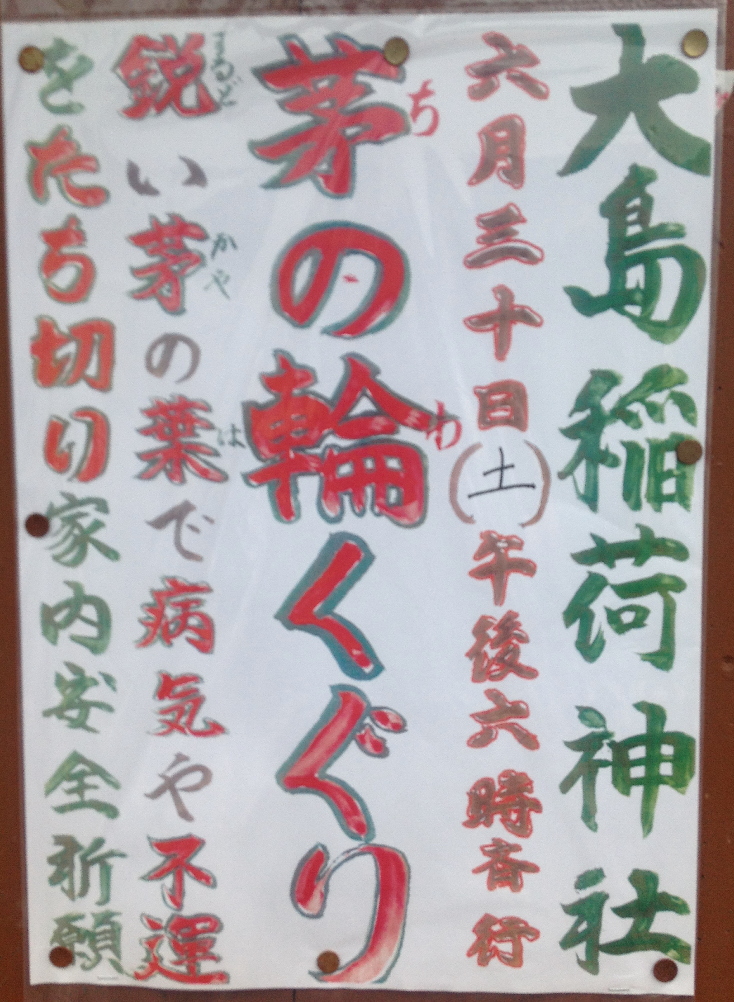 大島稲荷神社
六月三十日(土)午後六時斉行
茅の輪くぐり
ち
わ
鋭い茅の葉で病気や不運
するど
かや
は
をたち切り家内安全祈願